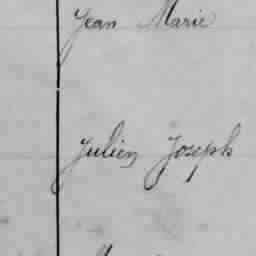 Jean Marie
Julien Joseph